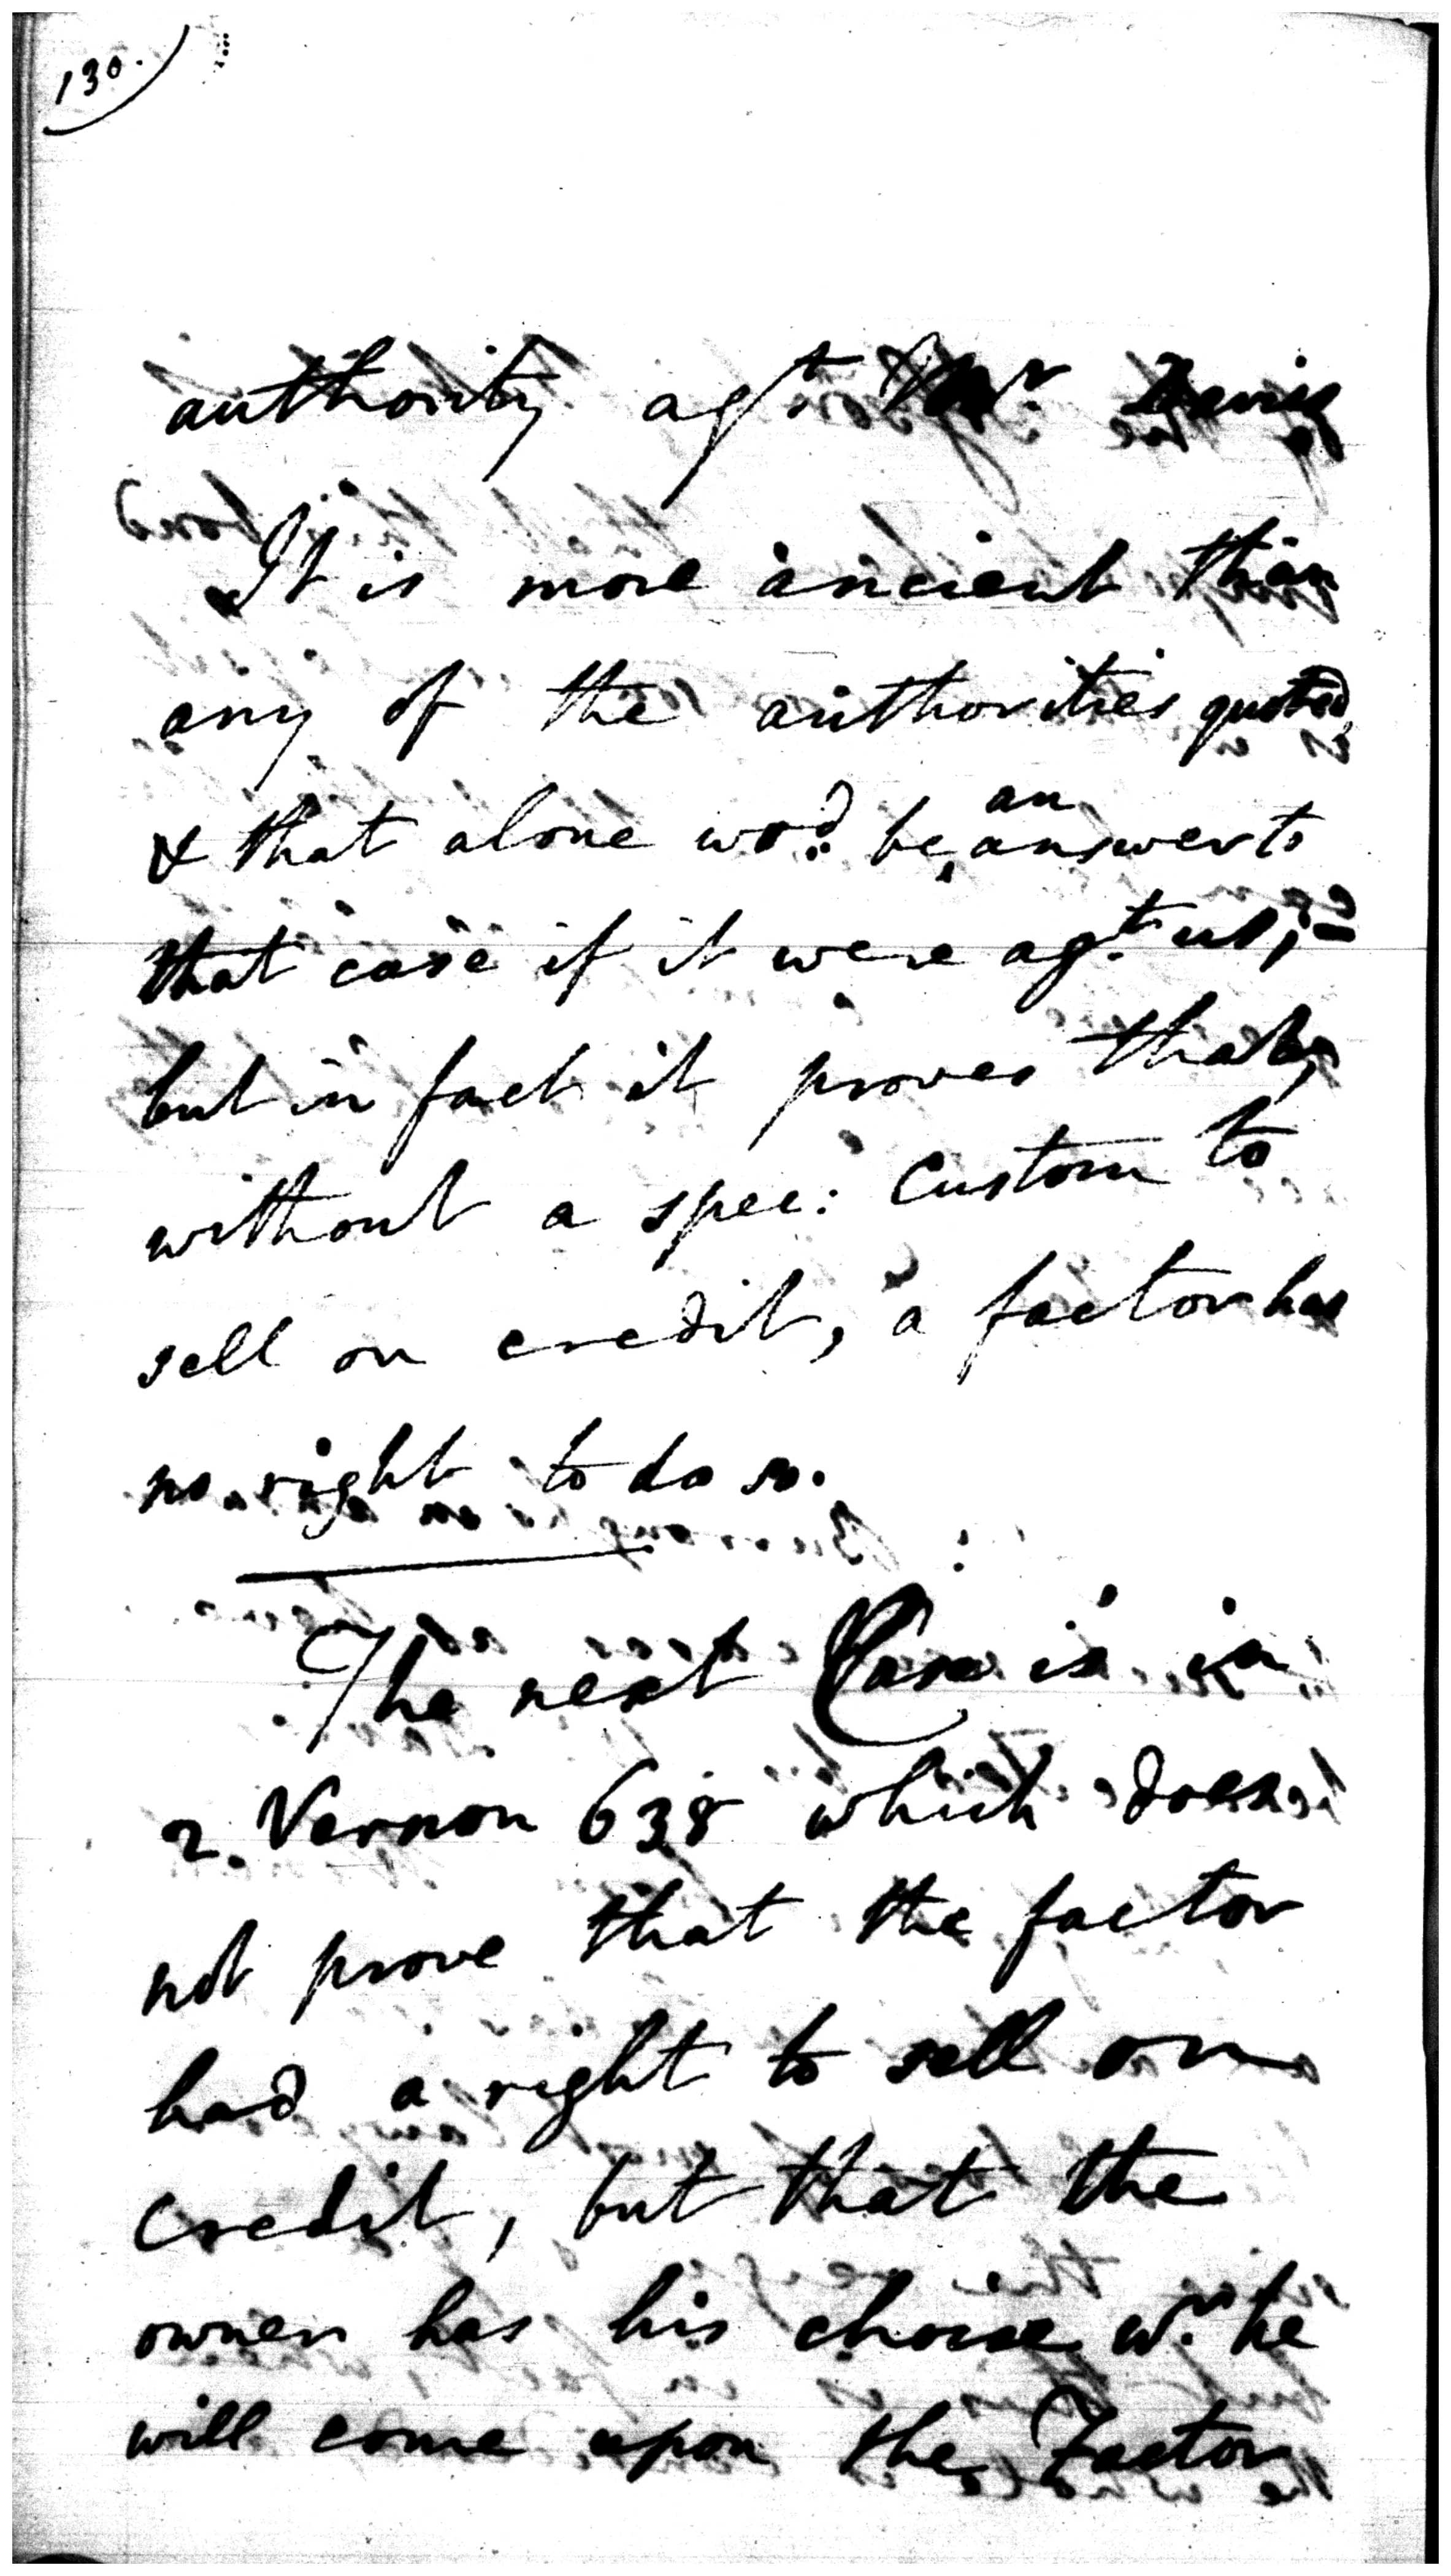 130.
authority agt. Mr. Davis
It is more ancient than
any of the authorities quoted,
& that alone wod. be an answer to
that case if it were agt. us; -
but in fact it proves that,
without a spec: Custom to
sell on credit, a factor has
no right to do so.
The next Case is in
2. Vernon 638 which does
not prove that the factor
had a right to sell on
credit, but that the
owner has his choise wr. he
will come upon the Factor